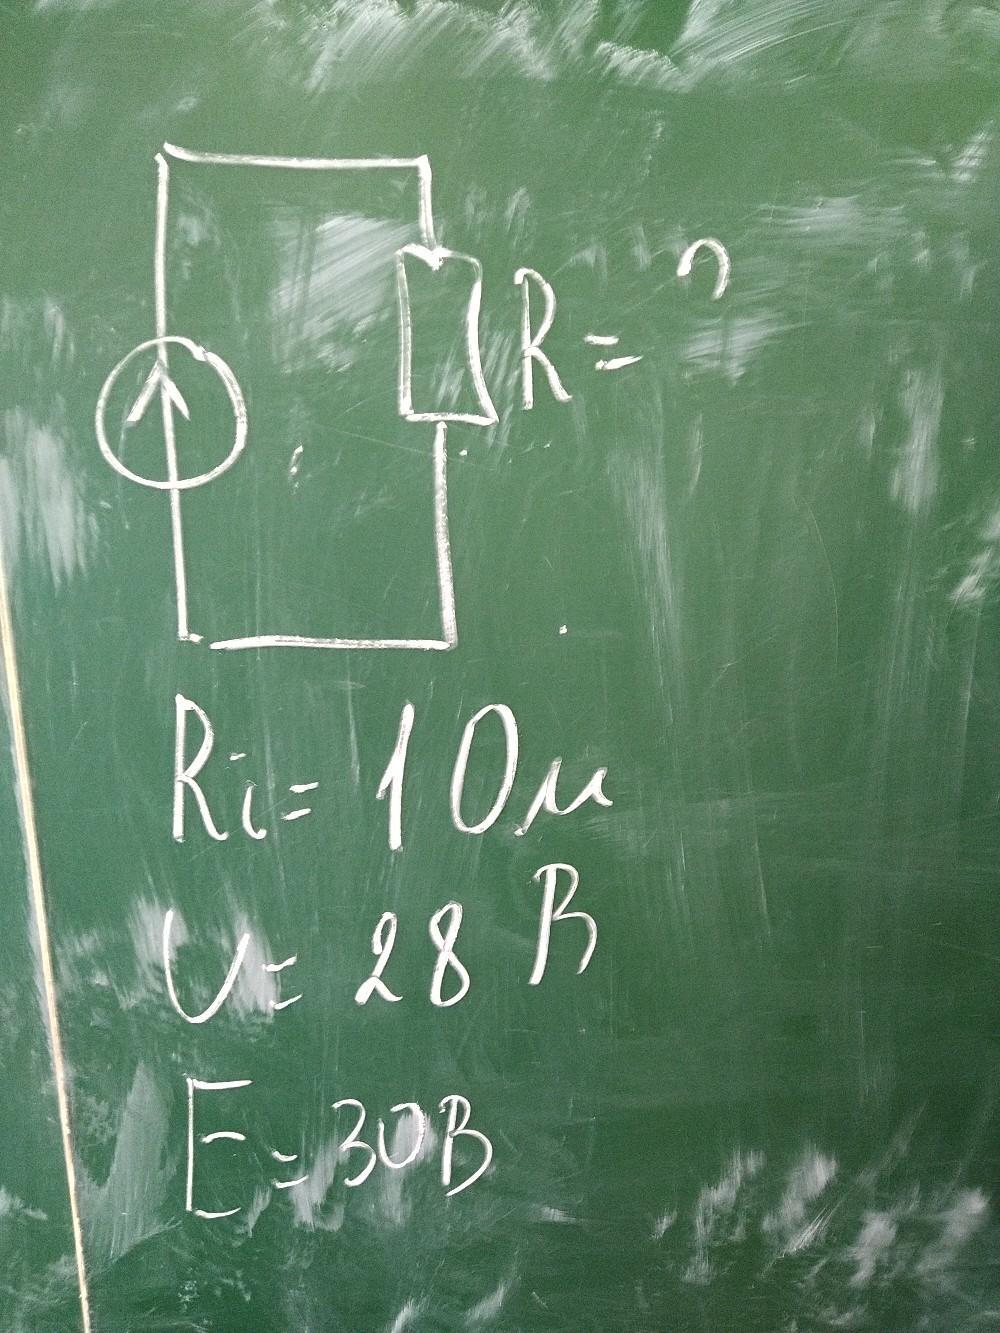 R = ?
Ri = 1 Ом
U = 28 В
E = 30В